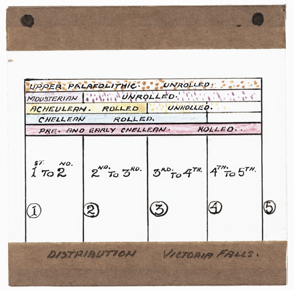 UPPER PALAEOLITHIC. UNROLLED.
MOUSTERIAN UNROLLED.
ACHEULEAN. ROLLED UNROLLED.
CHELLEAN ROLLED.
PRE- AND EARLY CHELLEAN. ROLLED.
1ST. TO 2ND. 2ND. TO 3RD. 3RD. TO 4TH. 4TH. TO 5TH.
1 2 3 4 5
DISTRIBUTION VICTORIA FALLS.